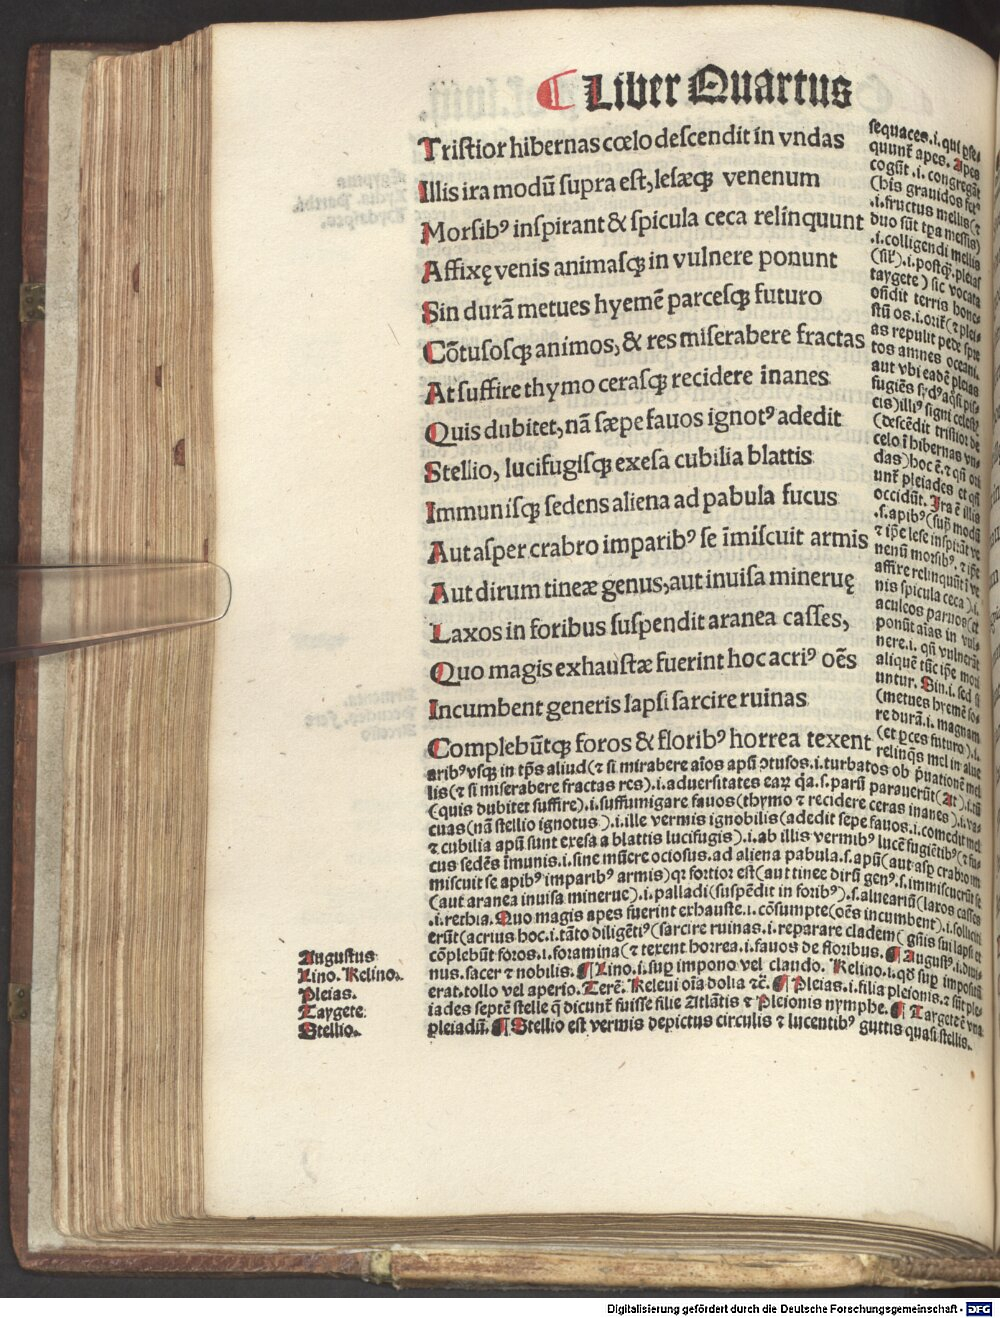 Liber Quartus
Tristior hibernas cœlo descendit in vndas
Illis ira modū supra est, lesæq; venenum
Morsibꝰ inspirant & spicula ceca relinquunt
Affixę venis animasq; in vulnere ponunt
Sin durā metues hyemē parcesq; futuro
Cōtusosq; animos, & res miserabere fractas
At suffire thymo cerasq; recidere inanes
Quis dubitet, nā sæpe fauos ignotꝰ adedit
Stellio, lucifugisq; exesa cubilia blattis
Immunisq; sedens aliena ad pabula fucus
Aut asper crabro imparibꝰ se īmiscuit armis
Aut dirum tineæ genus, aut inuisa mineruę
Laxos in foribus suspendit aranea casses,
Quo magis exhaustæ fuerint hoc acriꝰ oēs
Incumbent generis lapsi sarcire ruinas
Complebūtq; foros & floribꝰ horrea texent
sequaces .i. qui
quunt̄ apes. Apes
cogūt .i. congregāt
(bis grauidos
.i. fructus mellis (⁊
duo sūt messis)
.i. colligendi mellis
.i. postq̄ pleias
taygete) sic vocata
oñdit terris hones
stū os .i.
as repulit pede spre
tos amnes oceani.
aut vbi eadē pleias
fugiēs
cis) illiꝰ signi celestis
(descēdit tristior de
celo ī hibernas vn
das) hoc ē. ⁊ qñ
unt̄ pleiades et qñ
occidūt. Ira ē illis
.s. apibꝰ (sup̄ modū
⁊ ip̄e lese inspirāt ve
nenū morsibꝰ. ⁊ ip̄e
affixe relinquūt ī ve
nis spicula ceca) .i.
aculeos paruos (et
ponūt aīas in vul
nere .i. qñ vulnerāt
aliquē tūc ip̄e mori
untur. Sin .i. sed si
(metues hyemē fo
re durā .i. magnam
(et ꝑces futuro) .i.
relinq̄s mel in alue
aribꝰ vsq; in tp̄s aliud (⁊ si mirabere aīos apū ɔtusos .i. turbatos ob p̄uationē mel
lis (⁊ si miserabere fractas res) .i. aduersitates eaꝝ q̄a .s. parū parauerūt (At) .i. tñ
(quis dubitet suffire) .i. suffumigare fauos (thymo ⁊ recidere ceras inanes) .i. va
cuas (nā stellio ignotus) .i. ille vermis ignobilis (adedit sepe fauos .i. comedit mel
⁊ cubilia apū sunt exesa a blattis lucifugis) .i. ab illis vermibꝰ lucē fugiētibꝰ (⁊ fu
cus sedēs īmunis .i. sine mūere ociosus. ad aliena pabula .s. apū (aut asꝑ crabro im
miscuit se apibꝰ imparibꝰ armis) qꝛ fortior est (aut tinee dirū genꝰ .s. immiscuerūt se
(aut aranea inuisa minerue) .i. palladi (suspēdit in foribꝰ) .s. aluearīū (laxos casses
.i. rethia. Quo magis apes fuerint exhauste .i. cōsumpte (oēs incumbent) .i. solliciti
erūt (acrius hoc .i. tāto diligētiꝰ (sarcire ruinas .i. reparare cladem (gn̄is sui lapsi et
cōplebūt foros .i. foramina (⁊ texent horrea .i. fauos de floribus. ¶ Augustꝰ .i. diui
nus. sacer ⁊ nobilis. ¶ Lino .i. suꝑ impono vel claudo. Relino .i. qð suꝑ impositū
erat. tollo vel aperio. Terē. Releui oīa dolia ⁊č. ¶ Pleias .i. filia pleionis. ⁊ sūt ple
iades septē stelle q̄ dicunt̄ fuisse filie Atlātis ⁊ Pleionis nymphe. ¶ Targete ē vna
pleiadū. ¶ Stellio est vermis depictus circulis ⁊ lucentibꝰ guttis quasi stellis.
Augustus
Lino. Relino.
Pleias.
Taygete.
Stellio.
Digitalisierung gefördert durch die Deutsche Forschungsgemeinschaft - DFG